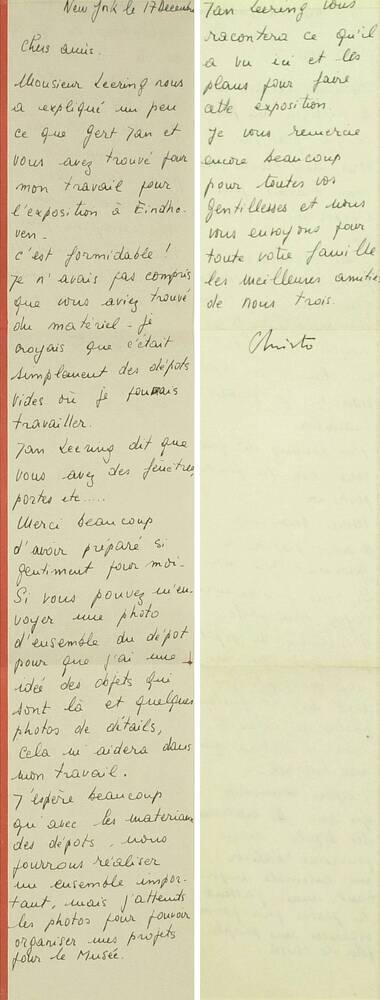 New York le 17 Decembre
Chers amis.
Monsieur Leering nous
a expliqué un peu
ce que Gert Jan et
vous avez trouvé pour
mon travail pour
l'exposition à Eindho-
ven.
c'est formidable !
Je n'avais pas compris
que vous aviez trouvé
du matériel - je
croyais que c'était
simplement des dépots
vides où je pourrais
travailler.
Jan Leering dit que
vous avez des fenêtres,
portes etc.....
Merci beaucoup
d'avoir préparé si
gentiment pour moi.
Si vous pouvez m'en-
voyer une photo
d'ensemble du dépot
pour que j'ai une
idée des objets qui
sont là et quelques
photos de détails,
cela m'aidera dans
mon travail.
J'espère beaucoup
qu'avec les materiaux
des dépots, nous
pourrons réaliser
un ensemble impor-
tant, mais j'attends
les photos pour pouvoir
organiser mes projets
pour le Musée.
Jan Leering vous
racontera ce qu'il
a vu ici et les
plans pour faire
cette exposition.
Je vous remercie
encore beaucoup
pour toutes vos
gentillesses et nous
vous envoyons pour
toute votre famille
les meilleures amitiés
de nous trois.
Christo